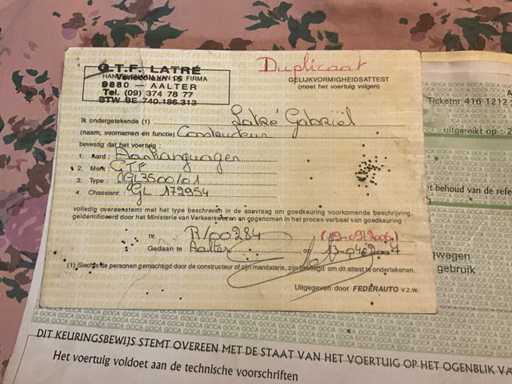 G.T.F. LATRÉ
9880 — AALTER
Tel. (09) 374 78 77
BTW BE 740.186.313
Duplicaat
GELIJKVORMIGHEIDSATTEST
(moet het voertuig volgen)
Ik ondergetekende (1) Latré Gabriël
(naam, voornamen en functie) Constructeur
bevestig dat het voertuig
1. Aard: Aanhangwagen
2. Merk: GTF
3. Type: GL3500/01
4. Chassisnr. GL 172954
volledig overeenstemt met het type beschreven in de aanvraag om goedkeuring voorkomende beschrijving,
geïdentificeerd door het Ministerie van Verkeerswezen en opgenomen in het proces-verbaal van goedkeuring
nr. R/00284
Gedaan te Aalter
(1) Slechts de personen gemachtigd door de constructeur of zijn mandataris, zijn bevoegd om dit attest te ondertekenen.
Uitgegeven door FEDERAUTO v.z.w.
Ticketnr 416 1212
uitgereikt op
behoud van de refe
wagen
gebruik
DIT KEURINGSBEWIJS STEMT OVEREEN MET DE STAAT VAN HET VOERTUIG OP HET OGENBLIK VA
Het voertuig voldoet aan de technische voorschriften